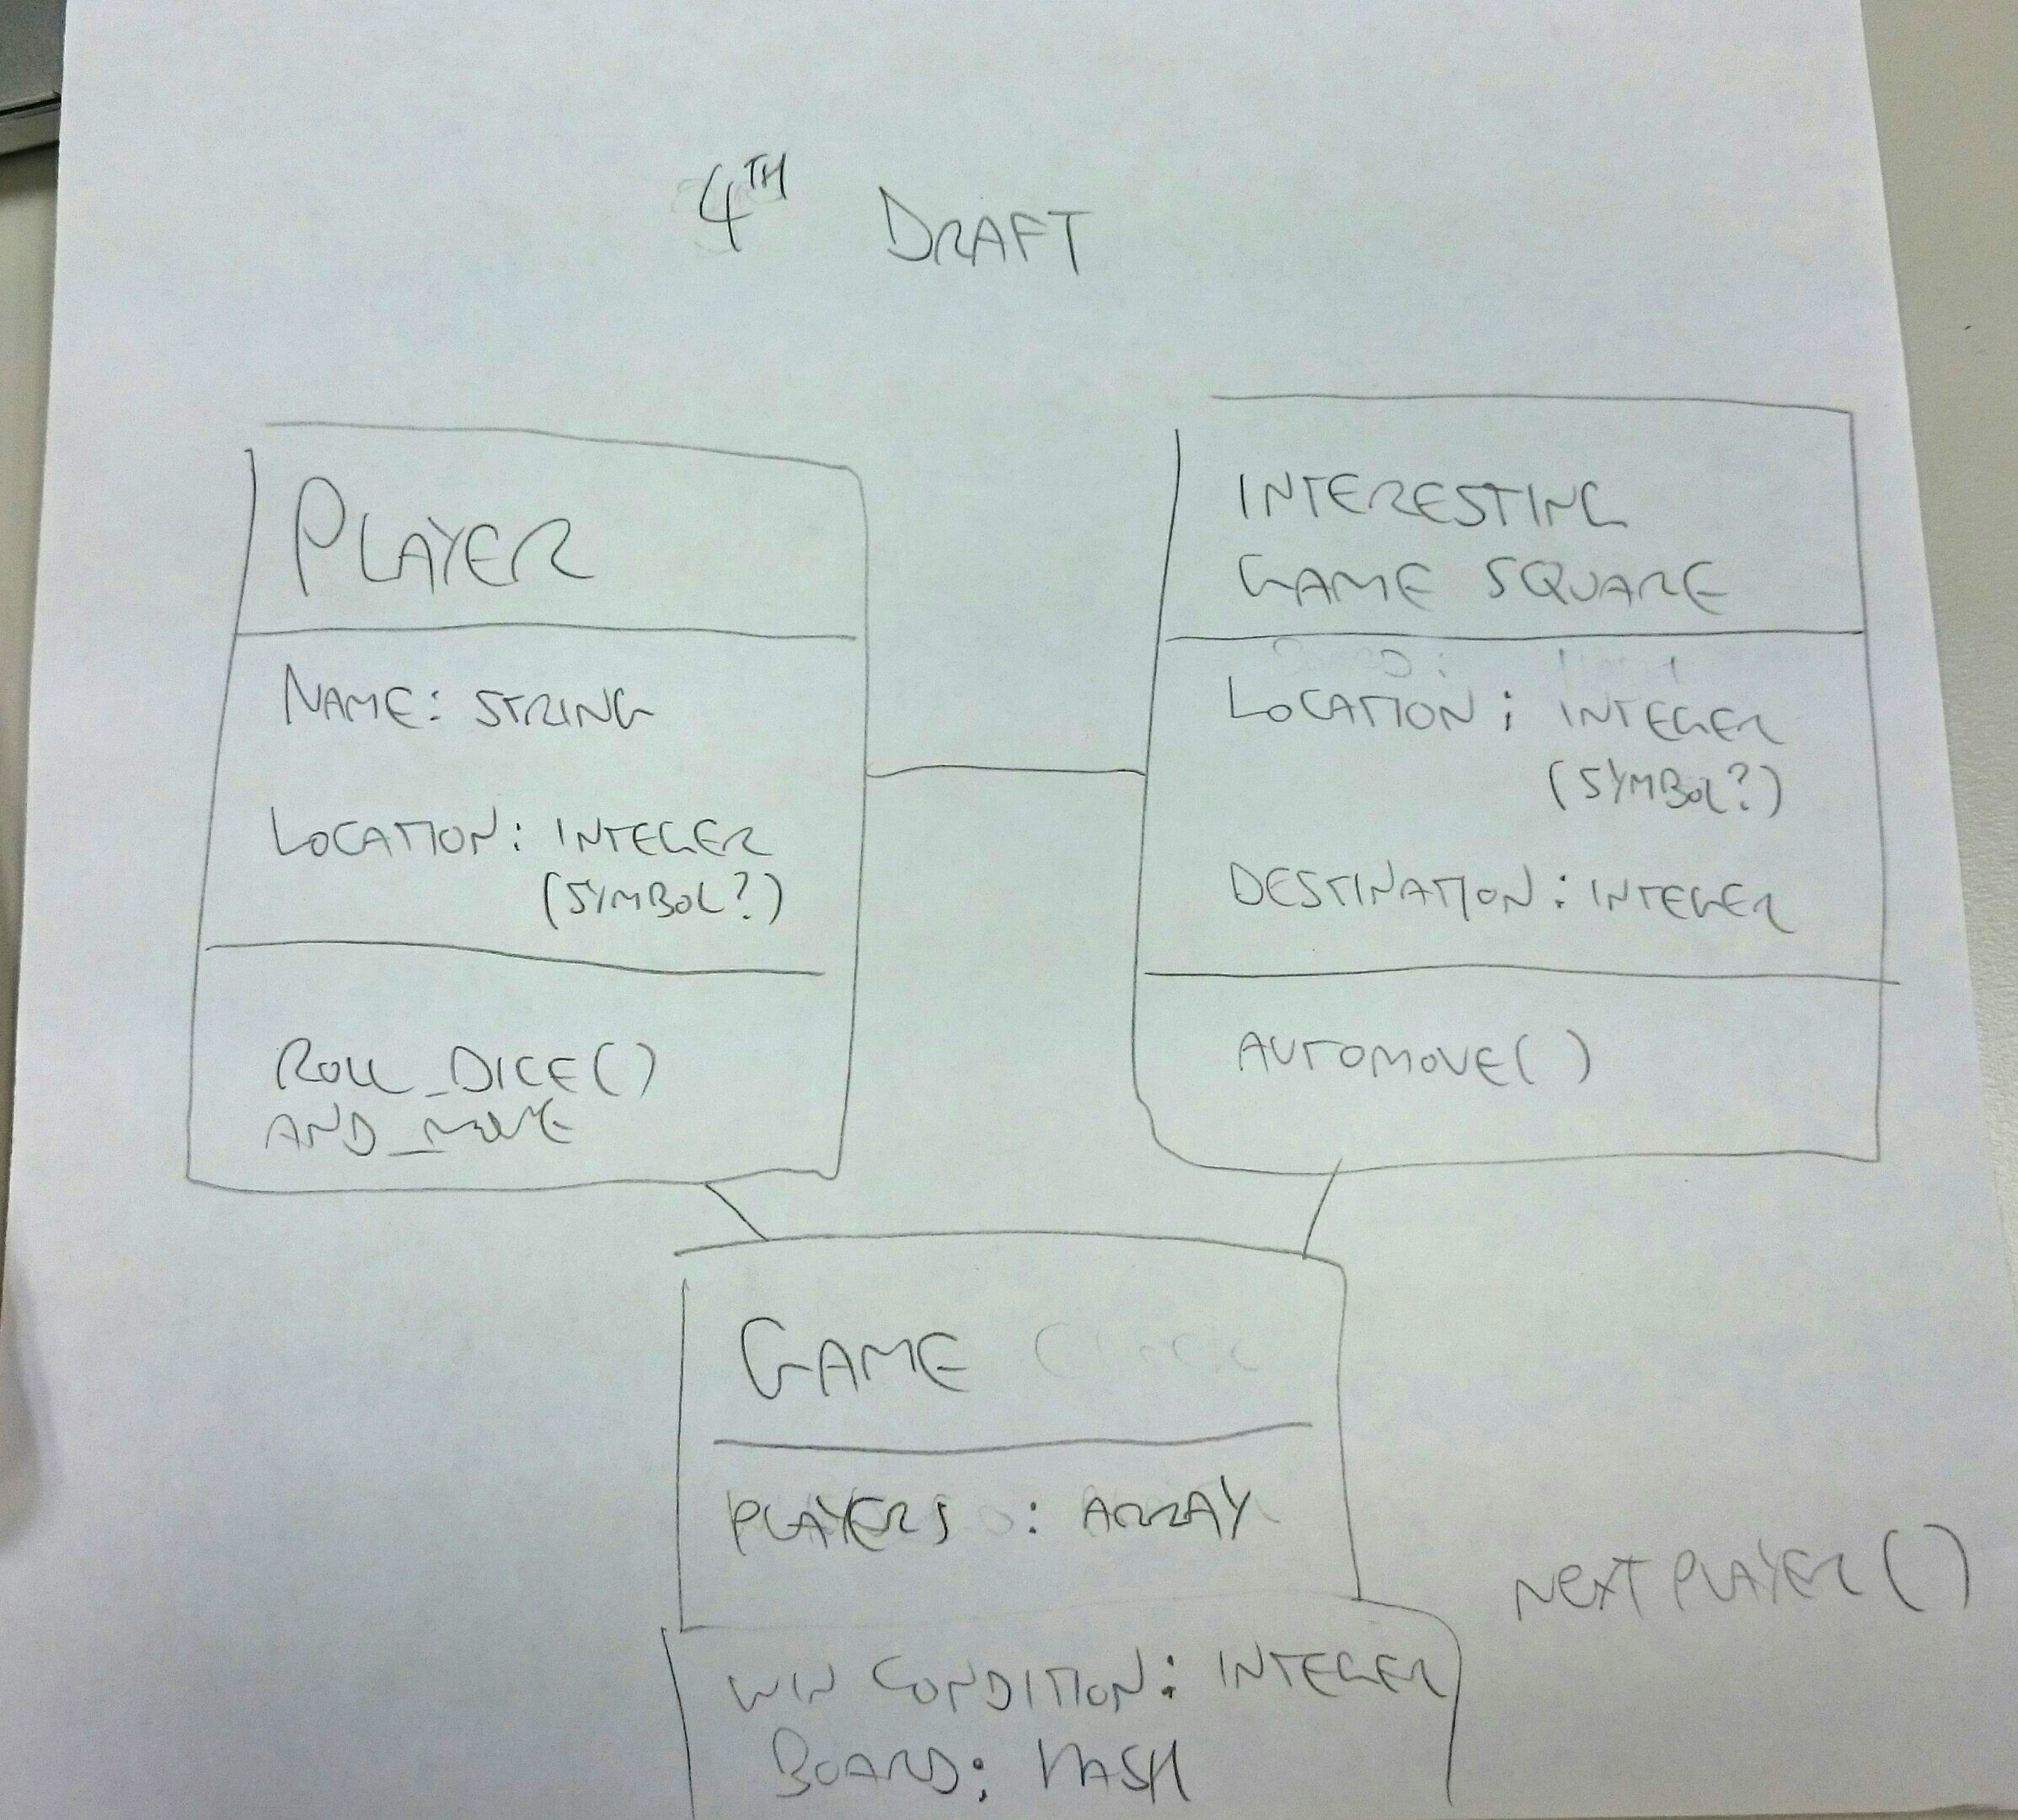 4TH DRAFT
PLAYER
NAME: STRING
LOCATION: INTEGER
(SYMBOL?)
ROLL_DICE()
AND_MOVE
INTERESTING
GAME SQUARE
LOCATION: INTEGER
(SYMBOL?)
DESTINATION: INTEGER
AUTOMOVE()
GAME
PLAYERS : ARRAY
WIN CONDITION: INTEGER
BOARD: HASH
NEXT PLAYER()